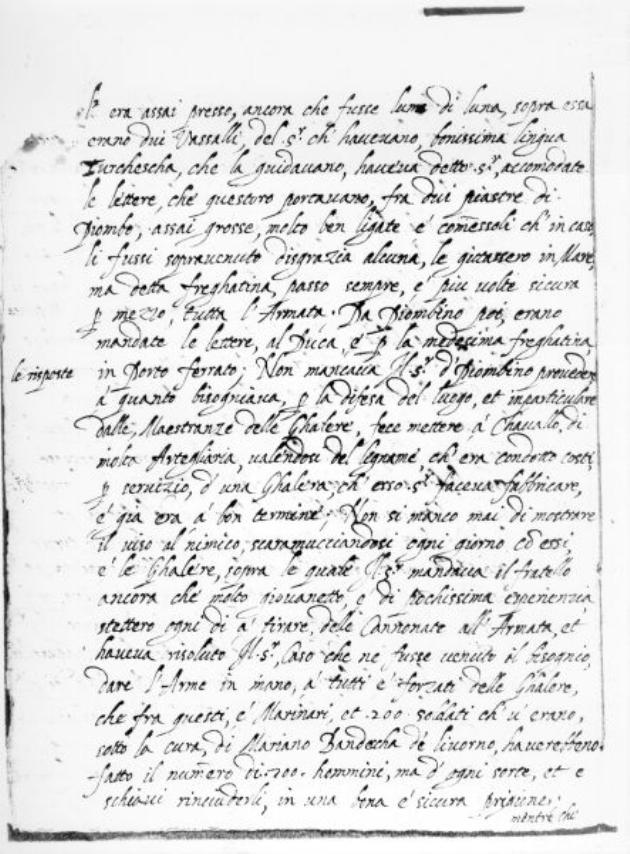 era assai presso, ancora che fusse lume di luna, sopra essa
erano dui Vassalli, del s.r ch'havevano, bonissima lingua
Turchescha, che la guidavano, haveva detto s.r, accomodate
le lettere, che questoro portavano, fra dui piastre di
Piombo, assai grosse, molto ben ligate é comessoli ch'in caso
li fussi sopravenuto disgrazia alcuna, le gittassero in Mare,
ma detta freghatina, passo sempre, é piu volte sicura
p mezzo, tutta l'Armata. Da Piombino poi, erano
mandate le lettere, al Duca, é p la medesima freghatina,
le risposte
in Porto ferrato; Non mancava Il s.r d'Piombino provedere
á quanto bisogniava, p la difesa del luogo, et inparticulare
dalle, Maestranze delle Ghalere, fece mettere á Chavallo, di
molta Artegliaria, valendosi del legname ch'era condotto costi
p servizio, d'una Ghalera, ch'esso s.r faceva fabbricare,
é già era á bon termine; Non si manco mai di mostrare
il viso al nimico, scaramucciandosi ogni giorno cō essi,
é le Ghalere, sopra le quale Il s.r mandava il fratello
ancora ché molto giovanetto, é di pochissima esperienzia
stettero ogni di á tirare, delle Cannonate all'Armata, et
haveva risoluto Il s.r, Caso che ne fusse venuto il bisognio,
dare l'Arme in mano, á tutti é forzati delle Ghalere,
che fra questi, é Marinari, et .200. soldati ch'v'erano,
sotto la cura, di Mariano Bandecha dé livorno, haverebbeno
fatto il numero di .700. hommini, ma d'ogni sorte, et é
schiavi rinciuderli, in una bona é sicura prigione;
mentre che